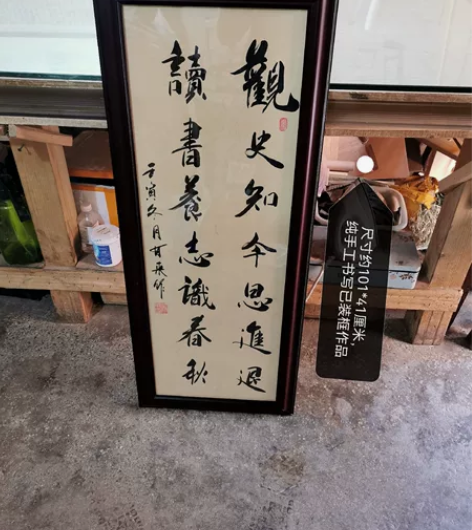 觀史知今思進退
讀書養志識春秋
壬寅冬月作
尺寸约101*41厘米,
纯手工书写已装框作品